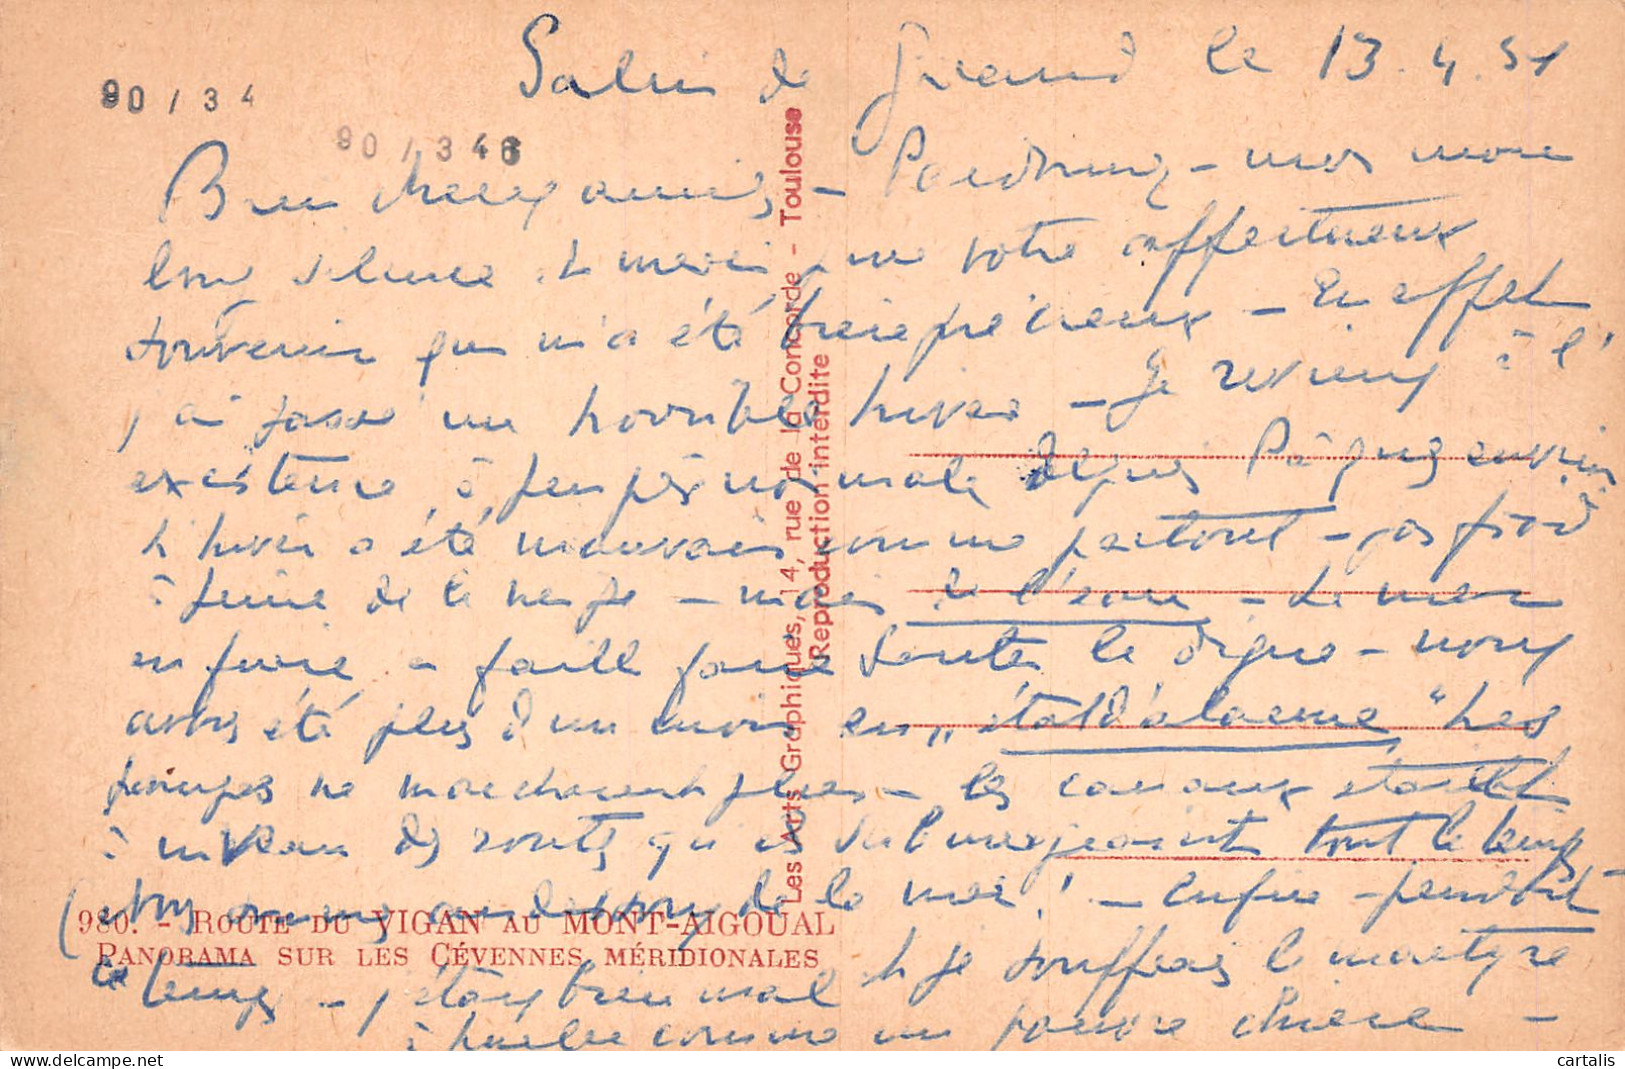 Salin de Giraud le 13.4.51
90/34
90/346
Bien chers amis, - Pardonnez - moi mon
long silence et merci que votre affectueux
souvenir qui m'a été très précieux - En effet
j'ai passé un horrible hiver - Je reviens à l'
existence à peu près normale depuis Pâques environ
L'hiver a été mauvais comme partout - pas froid
à peine de la neige - mais de l'eau - La mer
en furie a failli faire sauter la digue - nous
avons été plus d'un mois en "état d'alarme" Les
pompes ne marchaient plus - les canaux étaient
à niveau des routes qui es submergeaient tout le temps -
(nous sommes au dessous de la mer! - Enfin - pendant
ce temps - j'étais bien mal et je souffrais le martyre
à hurler comme un pauvre chien -
980. - ROUTE DU VIGAN AU MONT-AIGOUAL
PANORAMA SUR LES CÉVENNES MÉRIDIONALES
Les Arts Graphiques, 14, rue de la Concorde - Toulouse
Reproduction interdite
cartalis